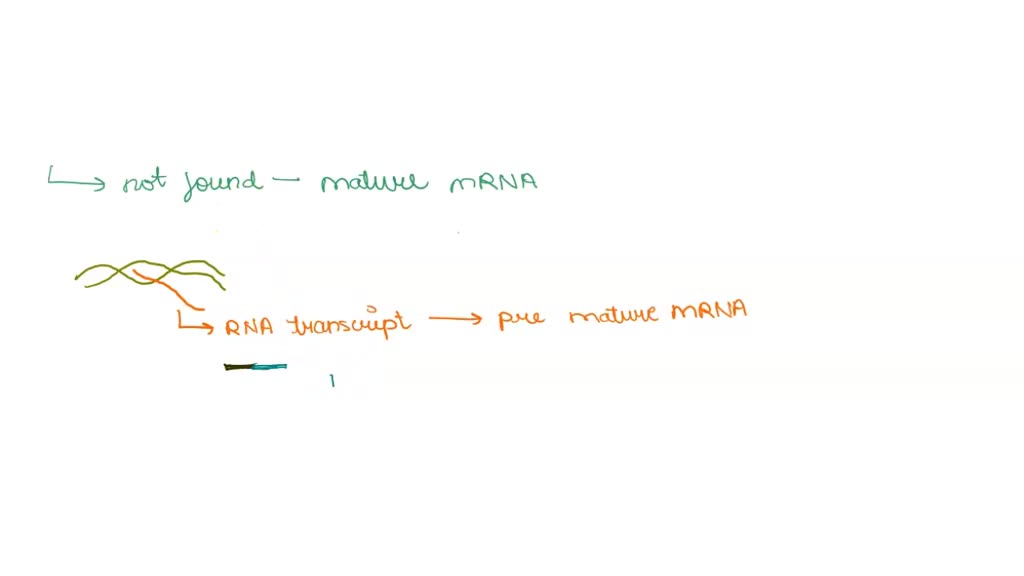 not found - mature mRNA
RNA transcript → pre mature mRNA